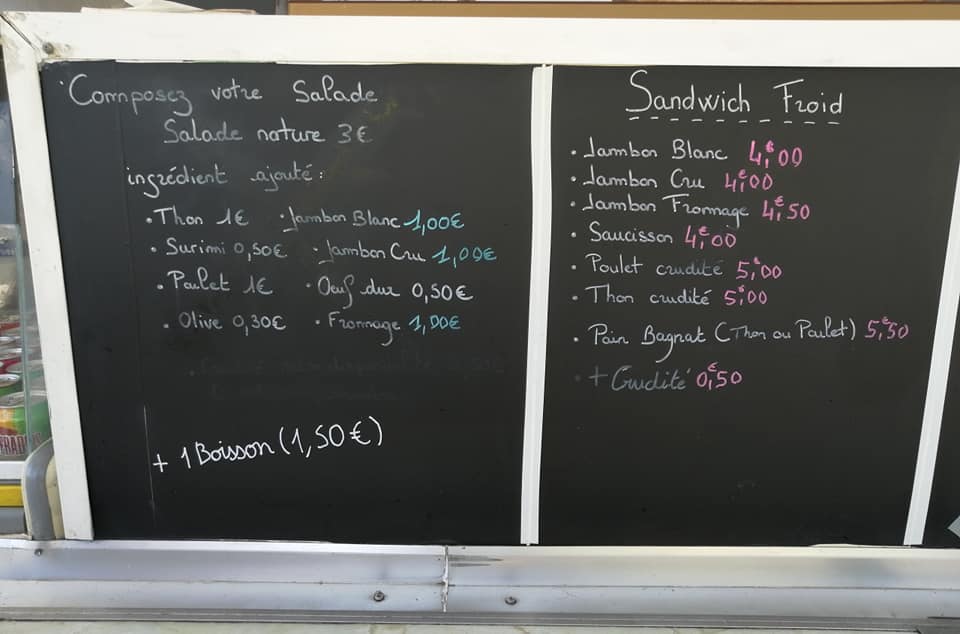 Composez votre Salade
Salade nature 3€
ingrédient ajouté :
• Thon 1€ • Jambon Blanc 1,00€
• Surimi 0,50€ • Jambon Cru 1,00€
• Poulet 1€ • Oeuf dur 0,50€
• Olive 0,30€ • Fromage 1,00€
+ 1 Boisson (1,50€)
Sandwich Froid
• Jambon Blanc 4,€00
• Jambon Cru 4,€00
• Jambon Fromage 4,€50
• Saucisson 4,€00
• Poulet crudité 5,€00
• Thon crudité 5,€00
• Pain Bagnat (Thon ou Poulet) 5,€50
• + Crudité 0,€50